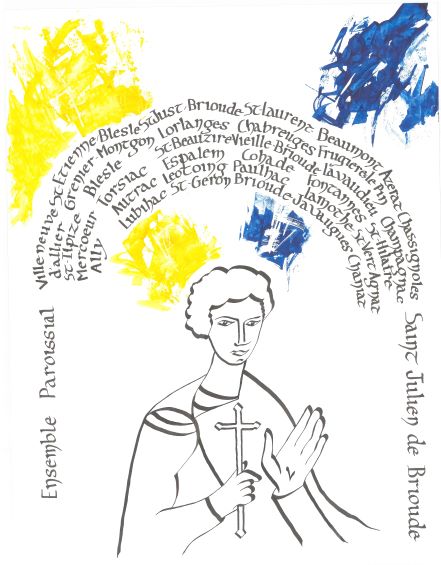 Villeneuve St-Etienne Blesle St Just Brioude St-Laurent Beaumont Azerat Chassignoles
d'allier Grenier Montgon Lorlanges Chabreuges Frugieres le Pin Champagnac
St-Ilpize Blesle St-Beauzire Vieille Brioude Lavaudieu St-Hilaire
Mercoeur Torsiac Espalem Cohade Fontannes St-Vert Agnat
Ally Autrac Leotoing Paulhac Lamothe
Lubilhac St-Geron Brioude Javaugues Chaniat
Ensemble Paroissial
Saint Julien de Brioude